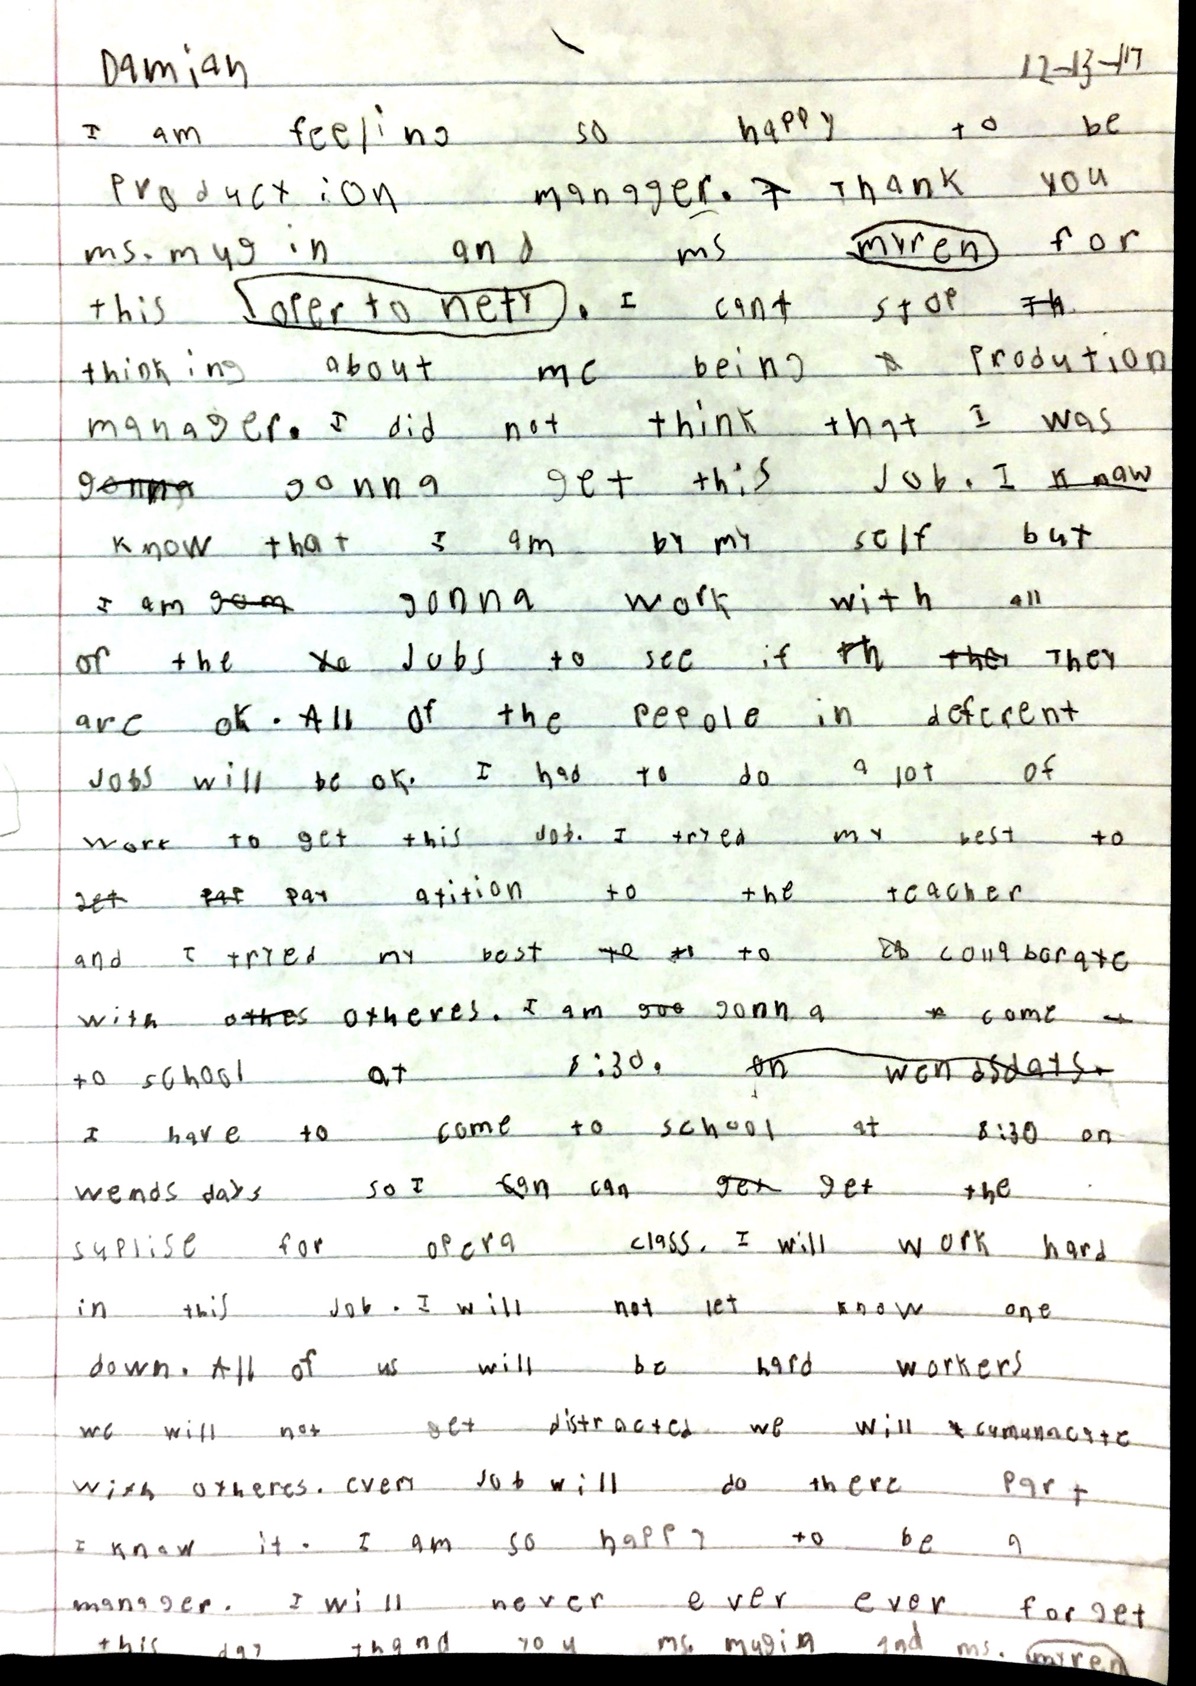 Damian 12-13-17
I am feeling so happy to be
production manager. I Thank you
ms. mugin and ms myren for
this oper to nety. I cant stop Th
thinking about me being a prodution
manager. I did not think that I was
gonna gonna get this Job. I knaw
know that I am by my self but
I am gom gonna work with all
of the Jobs to see if Th ther They
are ok. All of the peepole in deferent
Jobs will be ok. I had to do a lot of
work to get this Job. I tryed my best to
get pay atition to the teacher
and I tryed my best to to collaborate
with othes otheres. I am goo gonna come
to school at 8:30. on wendsdays.
I have to come to school at 8:30 on
wends days so I can can get get the
suplise for opera class. I will work hard
in this Job. I will not let know one
down. All of us will be hard workers
we will not get distracted we will cumunacate
with otheres. every Job will do there part
I know it. I am so happy to be a
manager. I will never ever ever forget
this day thand you ms. mugin and ms. myren